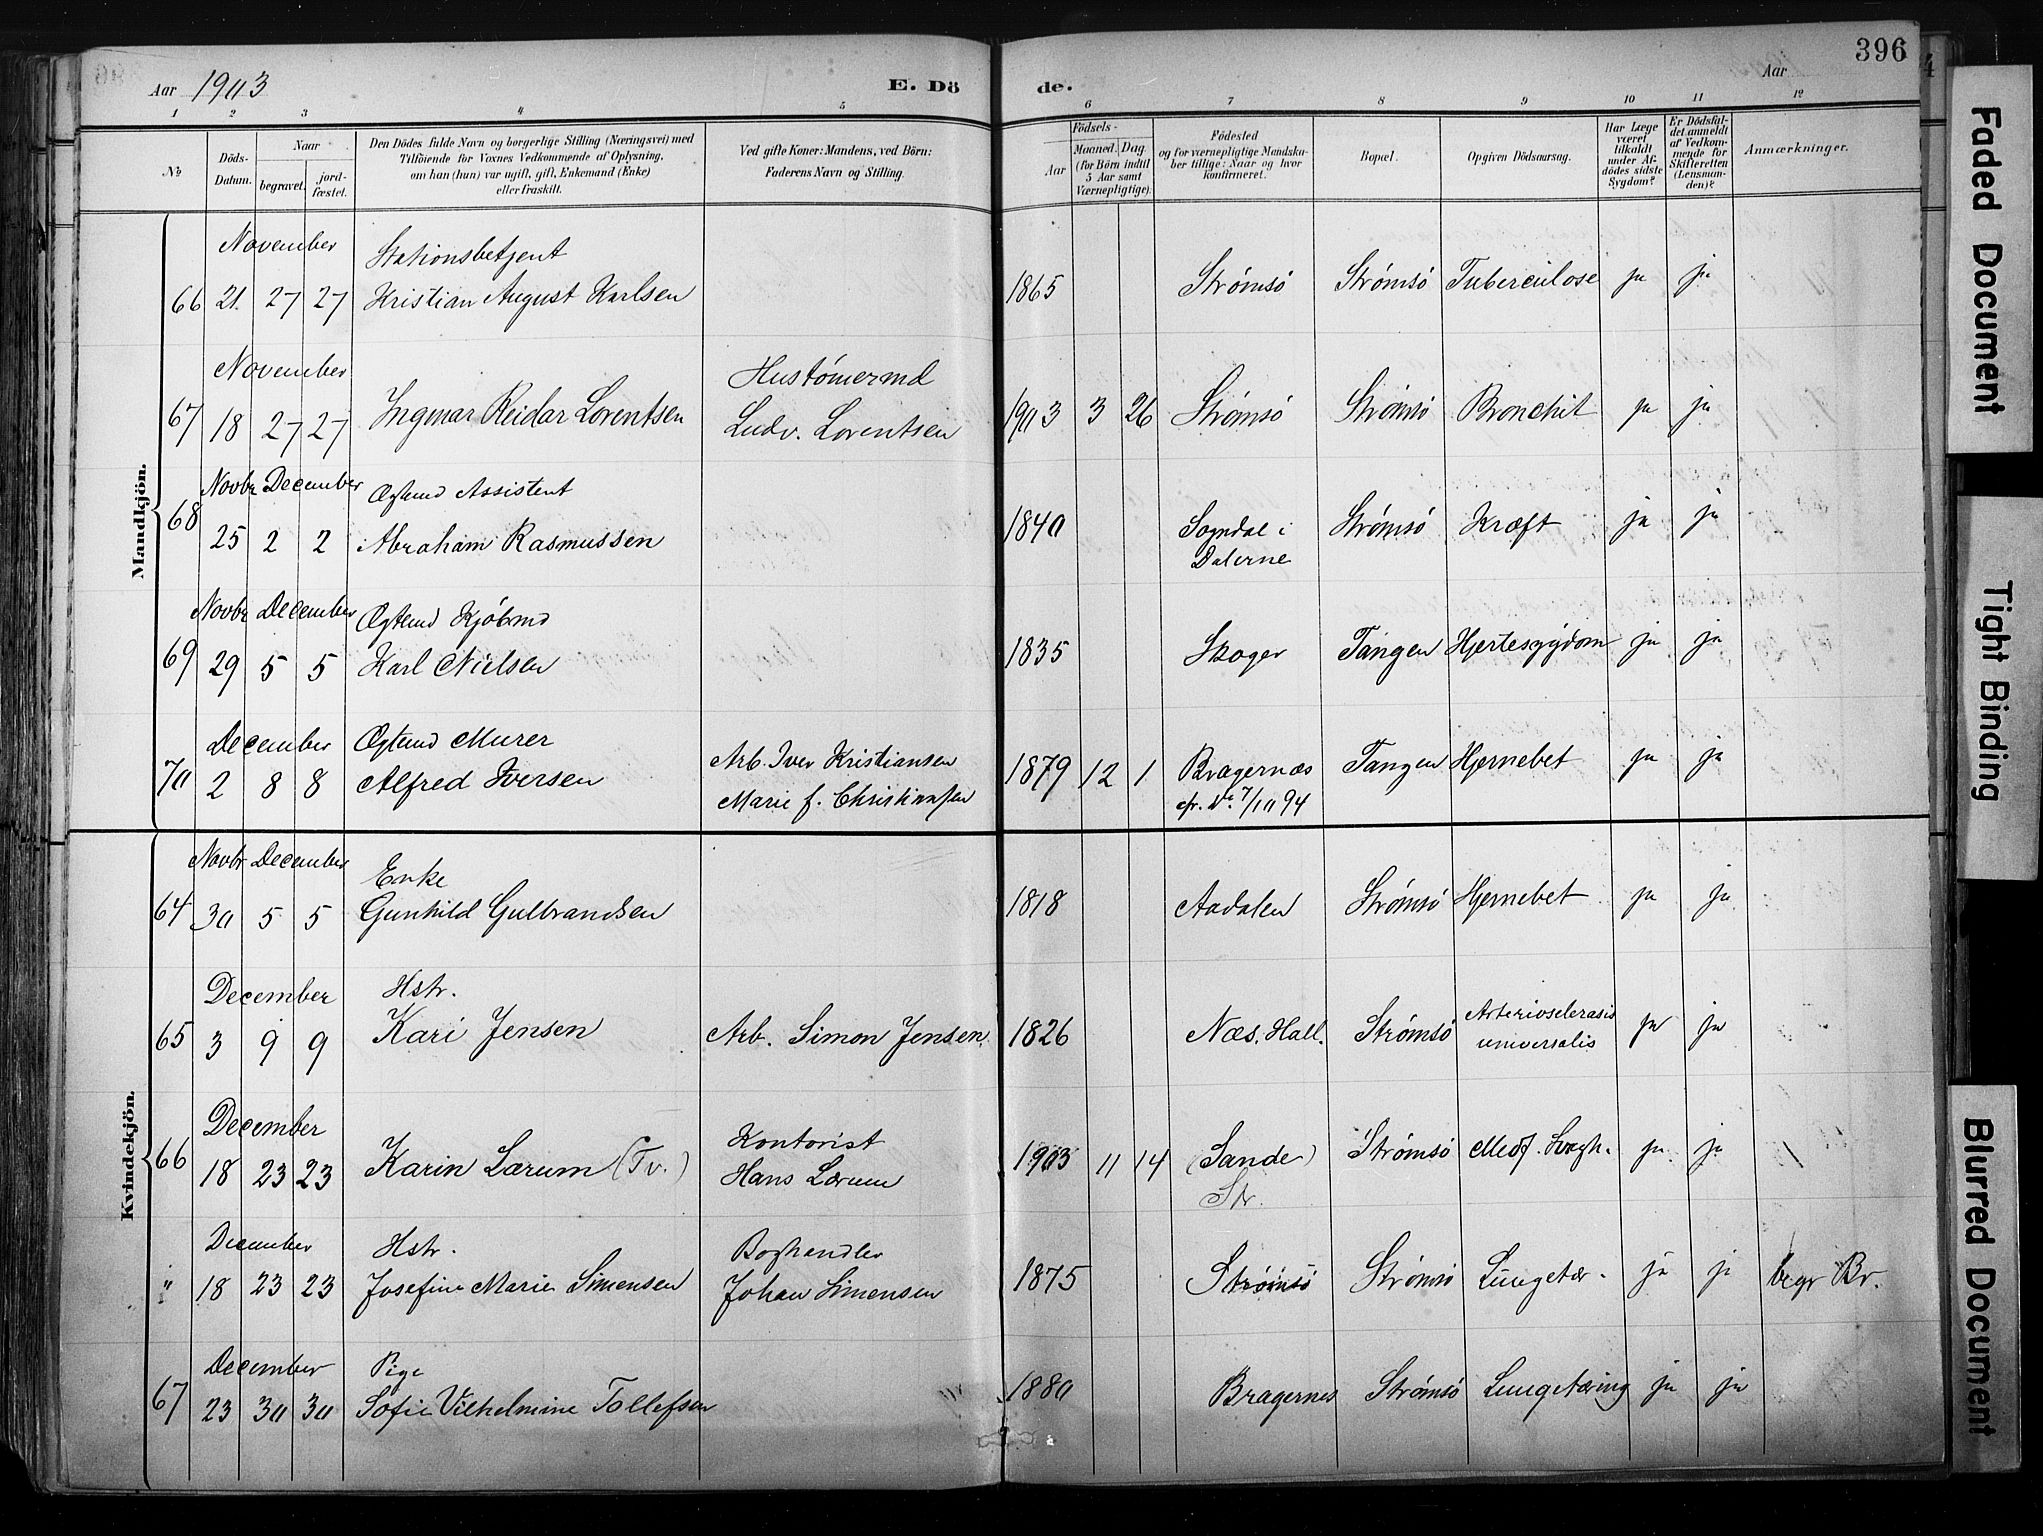 396
Aar 1903 E. Dö de. Aar
1 2 3 4 5 6 7 8 9 10 11 12
No
Döds-Datum.
Naar
begravet.
jord-fæstet.
Den Dödes fulde Navn og borgerlige Stilling (Næringsvei) med
Tilföiende for Voxnes Vedkommende af Oplysning,
om han (hun) var ugift, gift, Enkemand (Enke)
eller fraskilt.
Ved gifte Koner: Mandens, ved Börn:
Faderens Navn og Stilling.
Födsels-
Aar
Maaned. Dag.
(for Börn indtil
5 Aar samt
Værnepligtige).
Födested
og for værnepligtige Mandska-
ber tillige: Naar og hvor
konfirmeret.
Bopæl.
Opgiven Dödsaarsag.
Har Læge
været
tilkaldt
under Af-
dödes sidste
Sygdom?
Er Dödsfal-
det anmeldt
af Vedkom-
mende for
Skifteretten
(Lensman-
den)?
Anmærkninger.
Mandkjön.
November Stationsbetjent
66 21. 27 27 Kristian August Karlsen 1865 Strømsø Strømsø Tuberculose ja ja
November Hustømermd
67 18 27 27 Ingmar Reidar Lorentsen Ludv. Lorentsen 1903 3 26 Strømsø Strømsø Bronchit ja ja
Novbr December Ægtemd Assistent
68 25 2 2 Abraham Rasmussen 1840 Sogndal i Strømsø Kræft ja ja
Dalerne
Novbr December Ægtemd Kjøbmd
69 29 5 5 Karl Nielsen 1835 Skoger Tangen Hjertesygdom ja ja
December Ægtemd Murer Arb. Iver Kristiansen
70 2 8 8 Alfred Iversen Marie f. Christiansen 1879 12 1 Bragernæs Tangen Hjernebet ja ja
7/10 94
Kvindekjön.
Novbr December Enke
64 30 5 5 Gunhild Gulbrandsen 1818 Aadalen Strømsø Hjernebet ja ja
December Hstr.
65 3 9 9 Kari Jensen Arb. Simon Jensen. 1826 Næs. Hall. Strømsø Arteriosclerosis ja ja
universalis
December Kontorist
66 18 23 23 Karin Lærum (Tv.) Hans Lærum 1903 11 14 (Sande) Strømsø Medf. Svagh. ja ja
Str.
December Hstr. Boghandler
" 18 23 23 Josefine Marie Simensen Johan Simensen 1875 Strømsø Strømsø Lungetær. ja ja begr Br.
December Pige
67 23 30 30 Sofie Vilhelmine Tollefsen 1880 Bragernes Strømsø Lungetæring ja ja
Faded Document
Tight Binding
Blurred Document